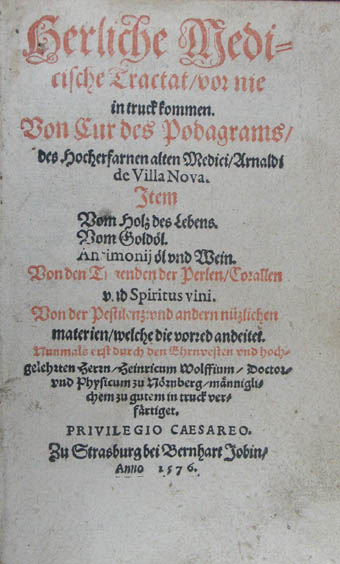 Herliche Medi-
cische Tractat/vor nie
in truck kommen.
Von Cur des Podagrams/
des Hocherfarnen alten Medici/Arnaldi
de Villa Nova.
Item
Vom Holz des Lebens.
Vom Goldöl.
Antimonij öl vnd Wein.
Von den Tugenden der Perlen/Corallen
vnd Spiritus vini.
Von der Pestilenz:vnd andern nüzlichen
materien/welche die vorred andeitet.
Nunmals erst durch den Ehrnvesten vnd hoch-
gelehrten Herrn/Heinricum Wolffium/Doctor-
vnd Physicum zu Nörnberg/männigli-
chem zu gutem in truck ver-
färtiget.
PRIVILEGIO CAESAREO.
Zu Strasburg bei Bernhart Jobin/
Anno 1576.